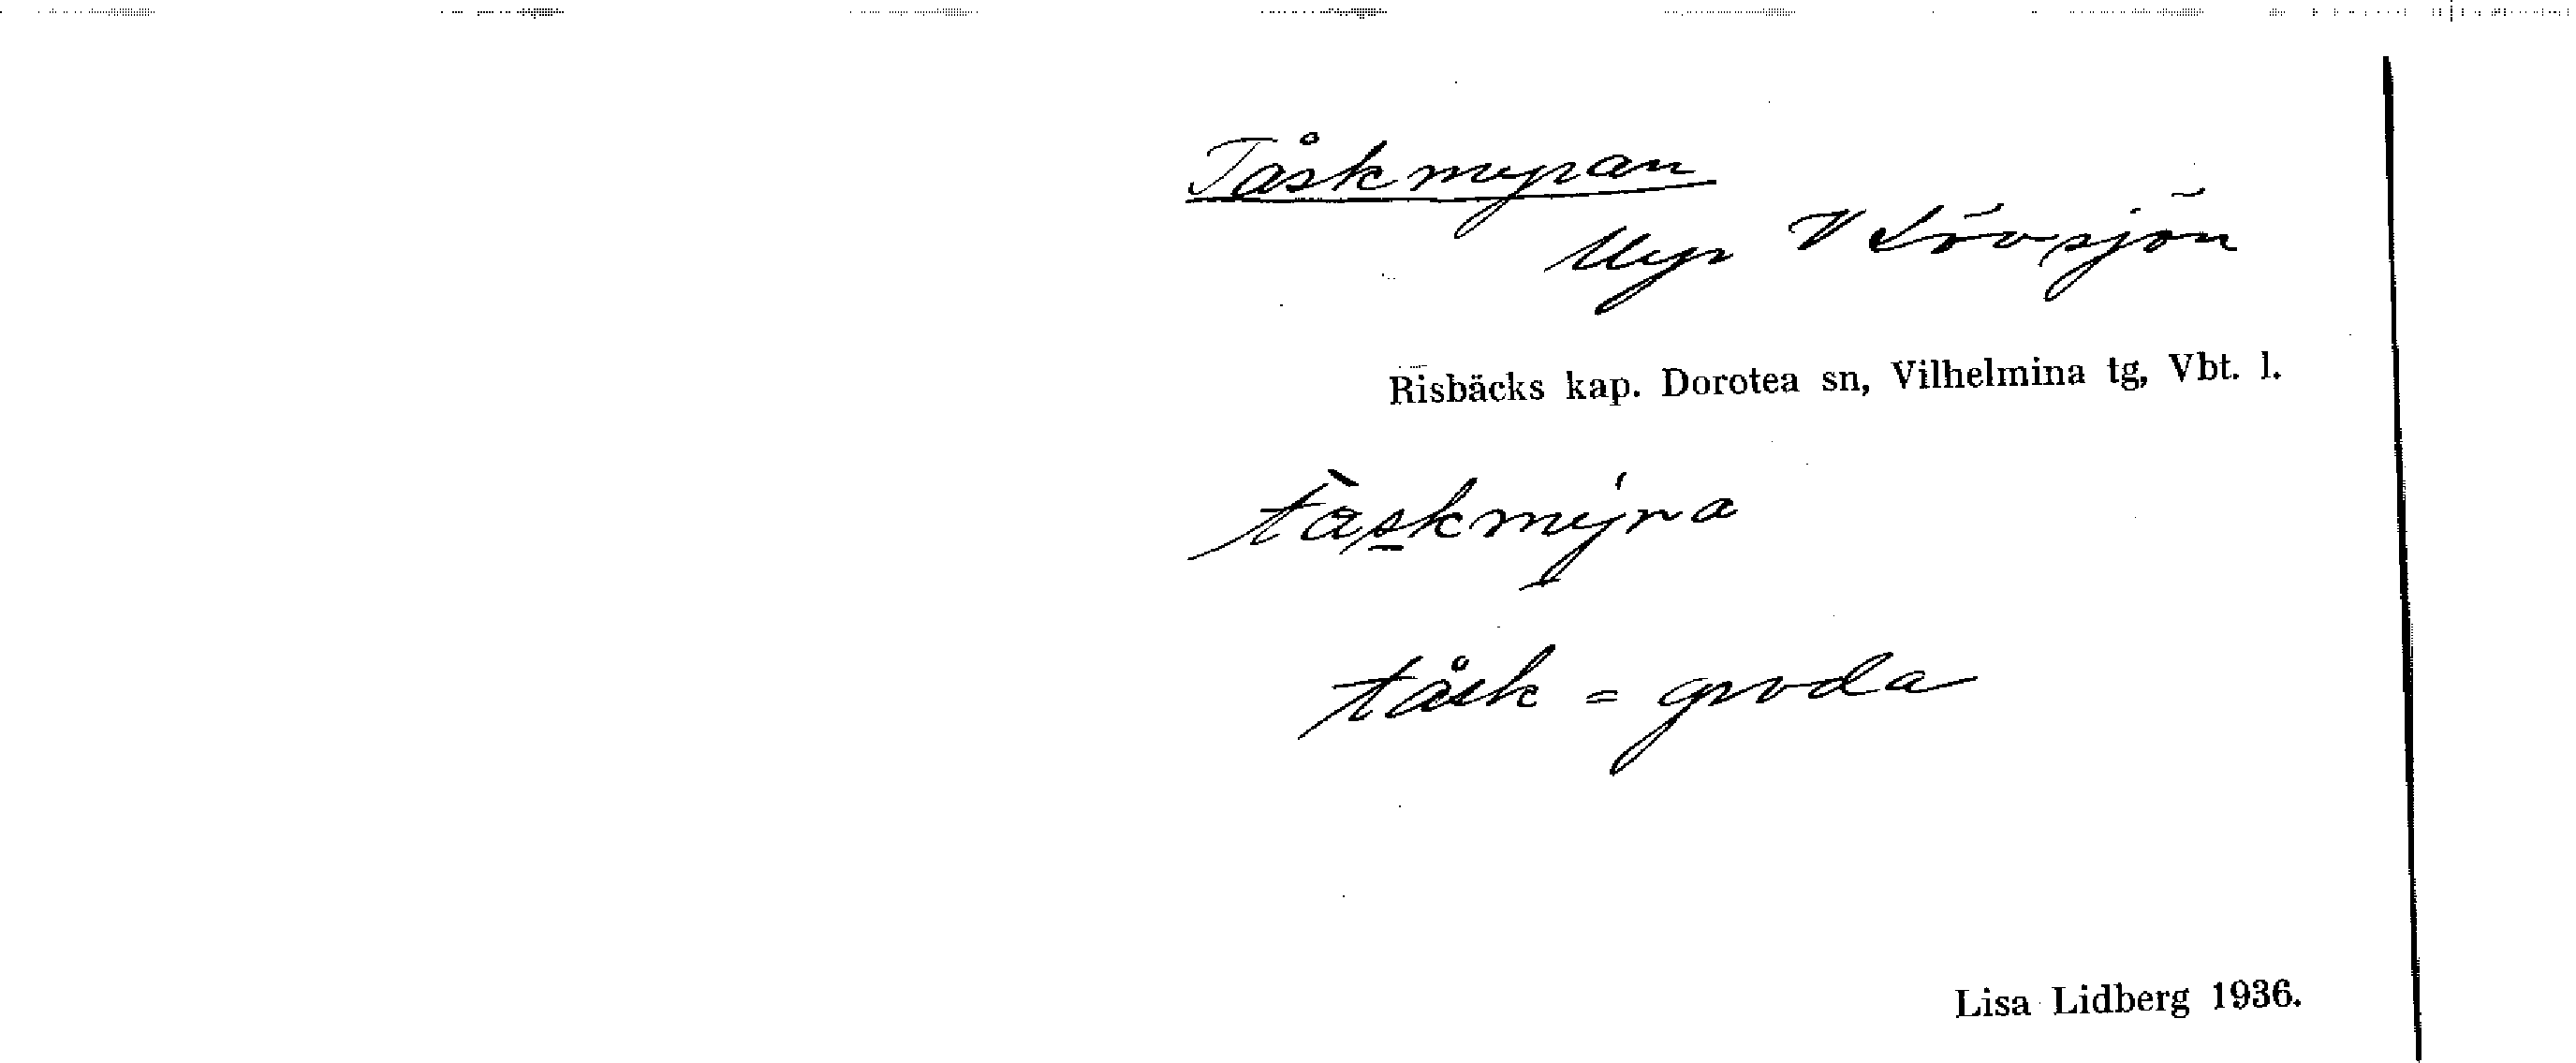 Tåskmyran
Myr V Lövsjön
Risbäcks kap. Dorotea sn, Vilhelmina tg, Vbt. l.
tàskmýra
tåsk = groda
Lisa Lidberg 1936.